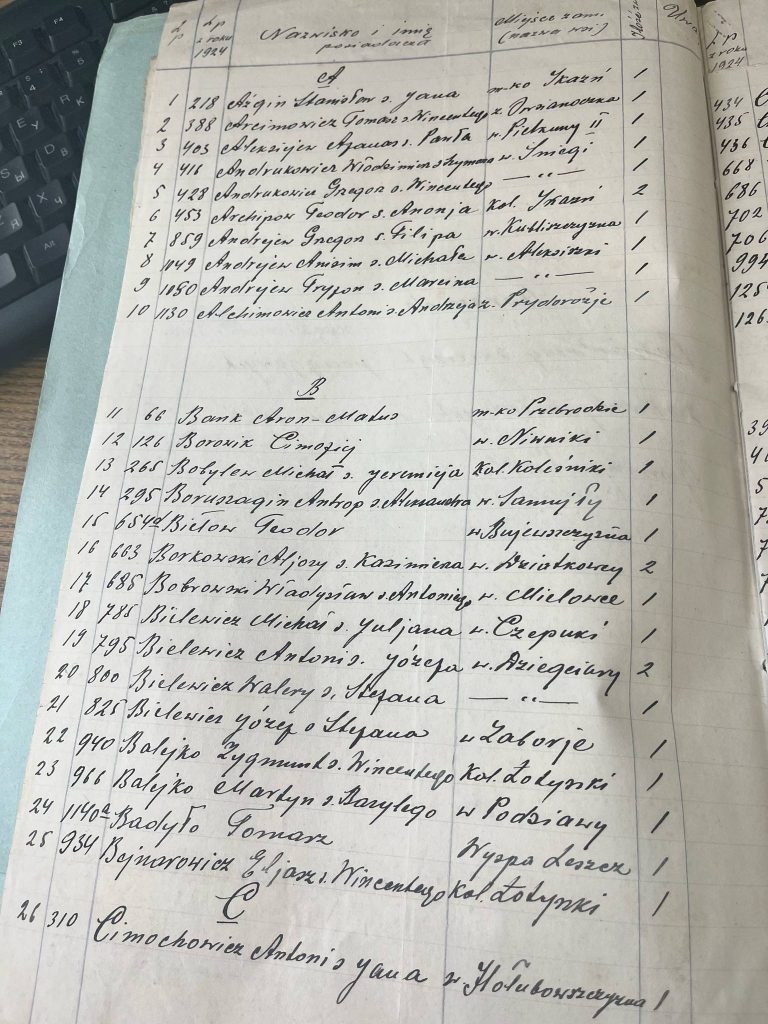 L p | L p z roku 1924 | Nazwisko i imię posiadacza | Miejsce zam. (nazwa wsi) | Ilość | Uwa
A
1 218 Ażgin Stanisław s. Jana m-ko Ikaźń 1
2 388 Arcimowicz Tomasz s. Wincentego z. 1
3 403 Aleksiejew Afanas s. Pawła w. Pietkuny II 1
4 416 Andrukowicz Włodzimierz s. Szymona w. Śniegi 1
5 428 Andrukowicz Gregor s. Wincentego — „ — 1
6 453 Archipow Teodor s. Anonja Kol. Ikaźń 2
7 859 Andrejew Gregor s. Filipa w. Kubliszczyzna 1
8 1049 Andrejew Anisim s. Michała w. Aleksiszki 1
9 1050 Andrejew Tryfon s. Marcina — „ — 1
10 1130 Alchimowicz Antoni s. Andrzeja z. Prydoroże 1
B
11 66 Bank Aron-Matus m-ko Przebrodzie 1
12 126 Borowik Cimofiej w. Niwniki 1
13 265 Bobylew Michał s. Jeremieja Kol. Koleśniki 1
14 295 Antrop s. Aleksandra w. Samujły 1
15 654a Biełow Teodor w Bujewszczyzna 1
16 663 Borkowski Aljozy s. Kazimierza w. Dziatkowcy 2
17 685 Bobrowski Władysław s. Antoniego w. Mielowce 1
18 785 Bielewicz Michał s. Juljana w. Czepuki 1
19 795 Bielewicz Antoni s. Józefa w. Dziegciary 2
20 800 Bielewicz Walery s. Stefana — „ — 1
21 825 Bielewicz Józef s Stefana w Zaborje 1
22 940 Balejko Zygmunt s. Wincentego Kol. Łotynki 1
23 966 Balejko Martyn s. Bazylego w Podziawy 1
24 1140a Badyło Tomasz Wyspa Leszcz 1
25 934 Bejnarowicz Eljasz s. Wincentego Kol. Łotynki 1
C
26 310 Cimochowicz Antoni s Jana w Hołubowszczyzna 1
L p z roku 1924
434
435
436
668
686
702
706
994